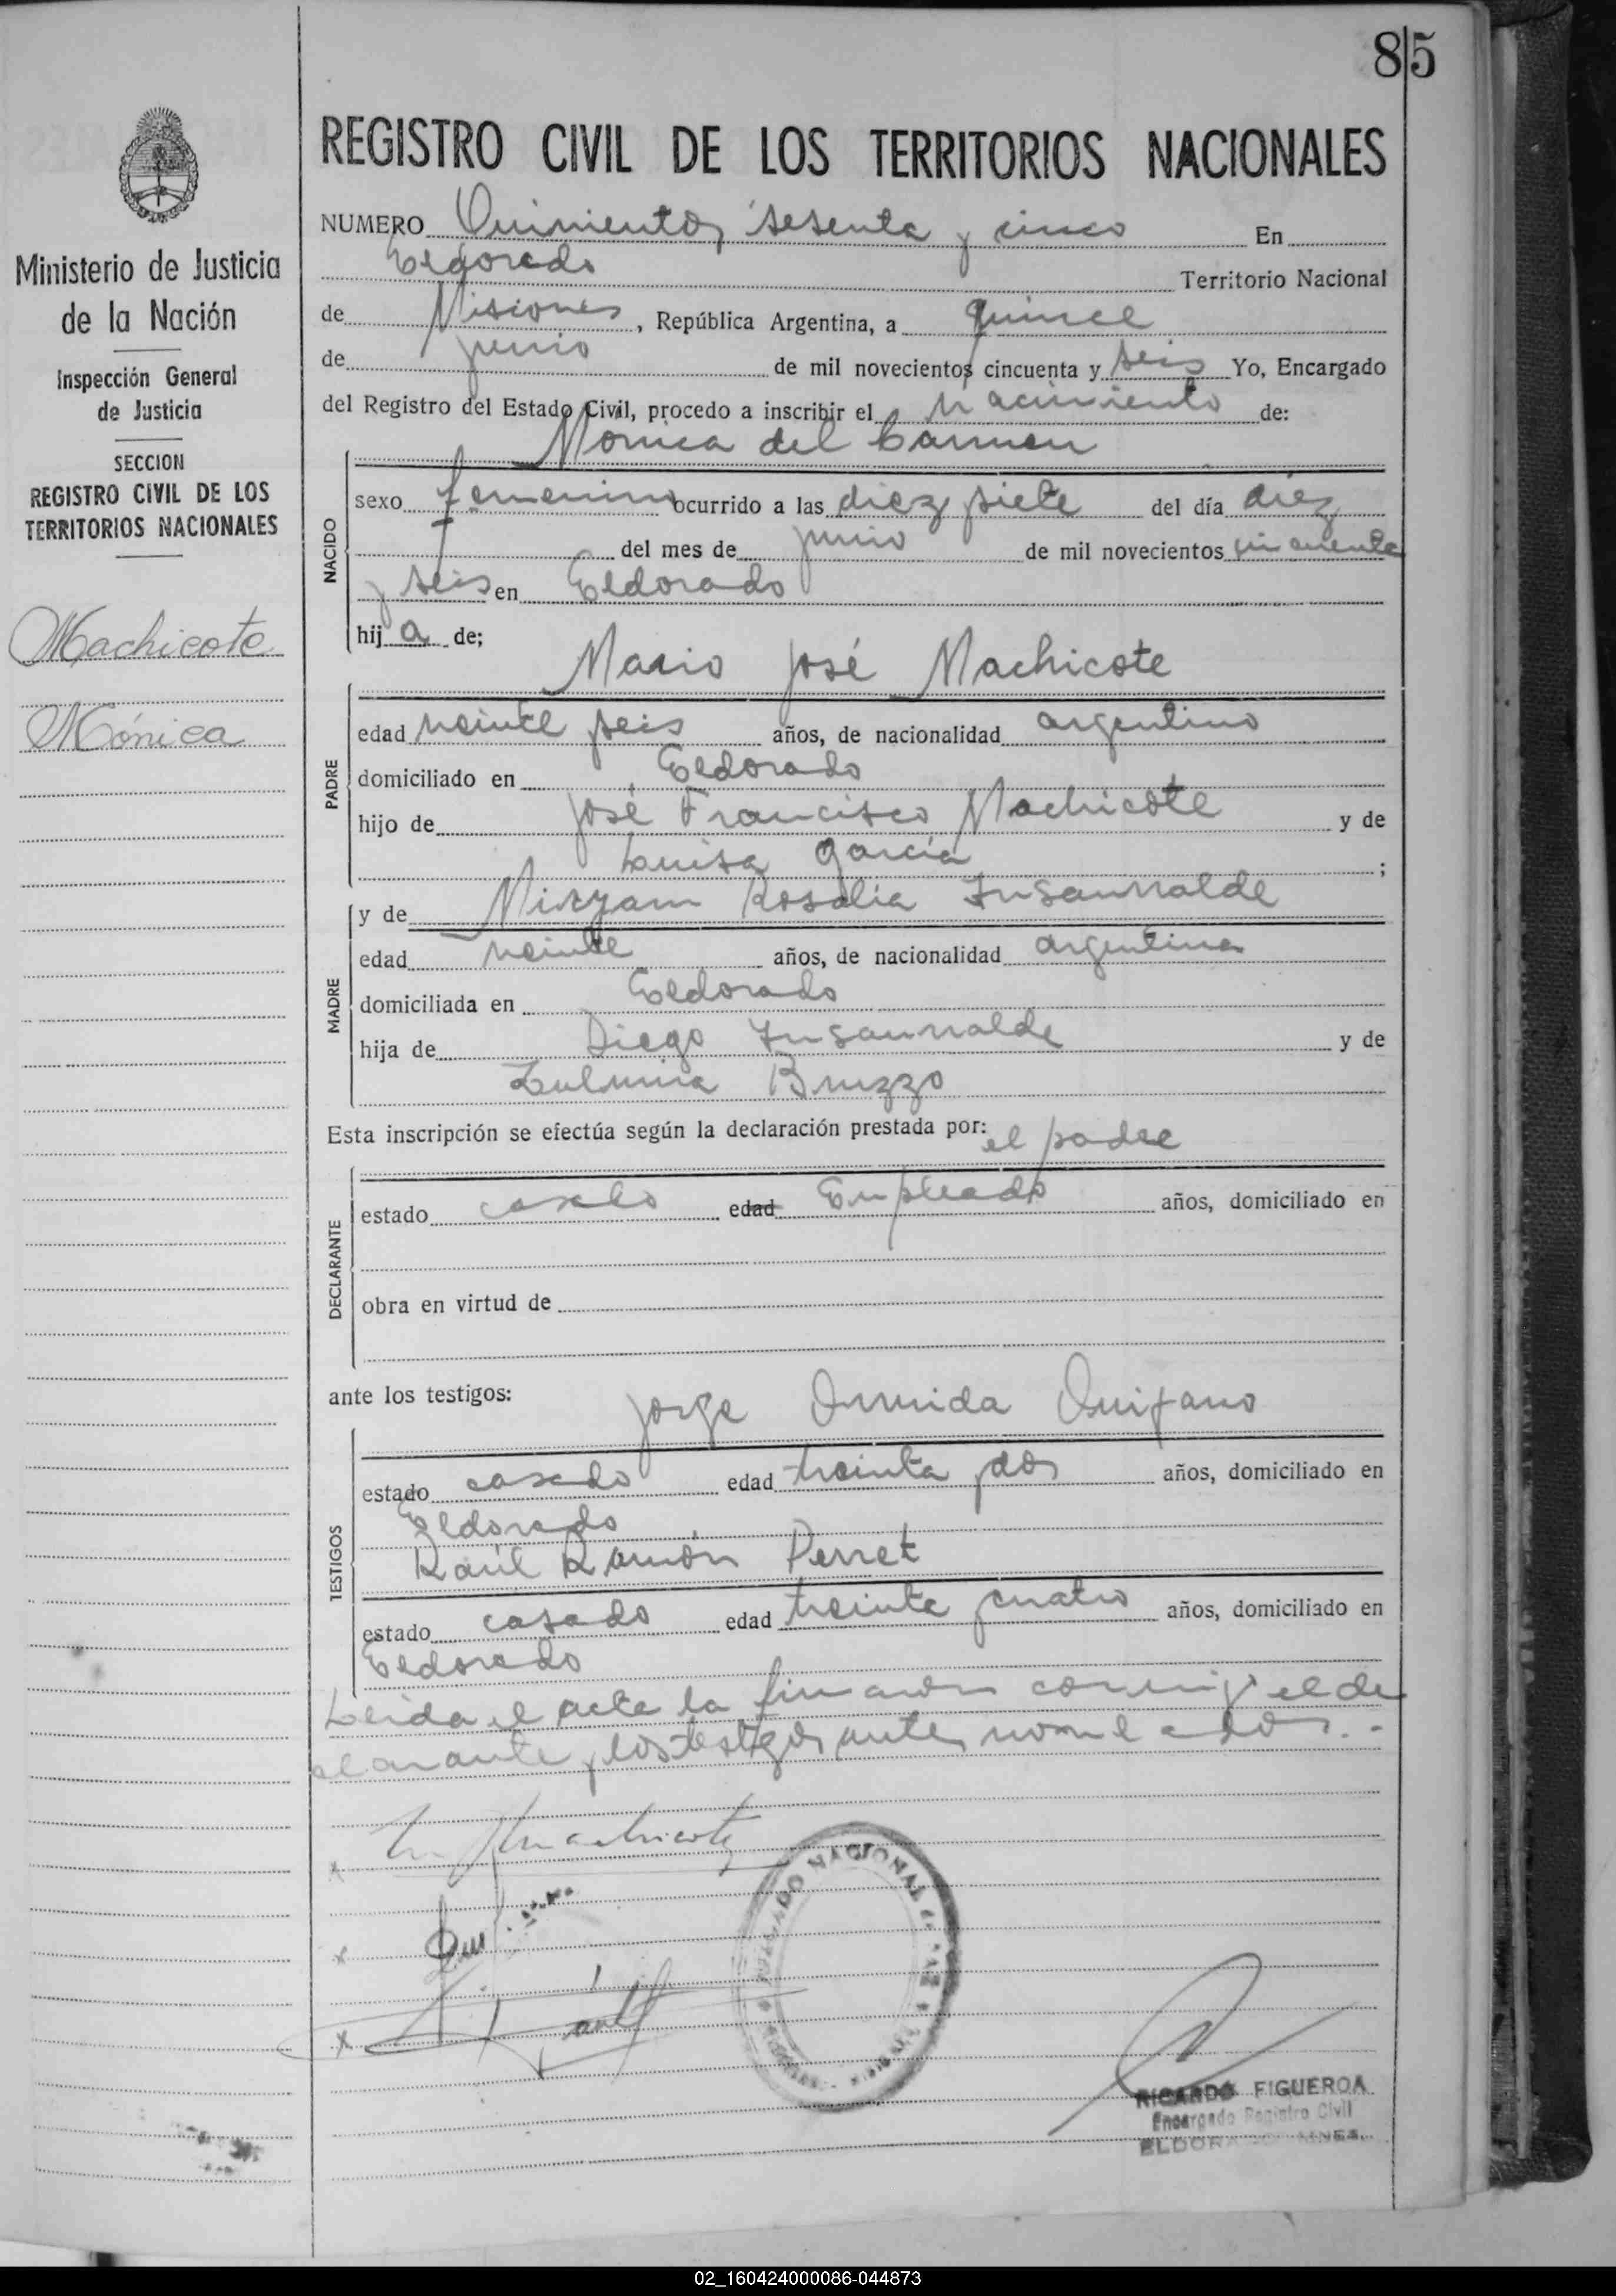 85
REGISTRO CIVIL DE LOS TERRITORIOS NACIONALES
Ministerio de Justicia
de la Nación
Inspección General
de Justicia
SECCION
REGISTRO CIVIL DE LOS
TERRITORIOS NACIONALES
Machicote
Mónica
NUMERO Quinientos sesenta y cinco En
Eldorado Territorio Nacional
de Misiones, República Argentina, a quince
de junio de mil novecientos cincuenta y seis Yo, Encargado
del Registro del Estado Civil, procedo a inscribir el nacimiento de:
Monica del Carmen
NACIDO
sexo femenino ocurrido a las diez y siete del día diez
del mes de junio de mil novecientos cincuenta
y seis en Eldorado
hij a de;
Mario José Machicote
PADRE
edad veinte y seis años, de nacionalidad argentino
domiciliado en Eldorado
hijo de José Francisco Machicote y de
Luisa García ;
y de Miryam Rosalia Insaurralde
MADRE
edad veinte años, de nacionalidad argentina
domiciliada en Eldorado
hija de Diego Insaurralde y de
Zulmira Bruzzo
Esta inscripción se efectúa según la declaración prestada por: el padre
DECLARANTE
estado casado edad Empleado años, domiciliado en
obra en virtud de
ante los testigos: Jorge Quijano
TESTIGOS
estado casado edad treinta y dos años, domiciliado en
Eldorado
Raúl Ramón Perret
estado casado edad treinta y cuatro años, domiciliado en
Eldorado
Leida el acta la firmaron conmigo el de
clarante y los testigos antes nombrados.-
Machicote
JUZGADO NACIONAL DE PAZ
RICARDO FIGUEROA
Encargado Registro Civil
ELDORADO MNES.
02_160424000086-044873